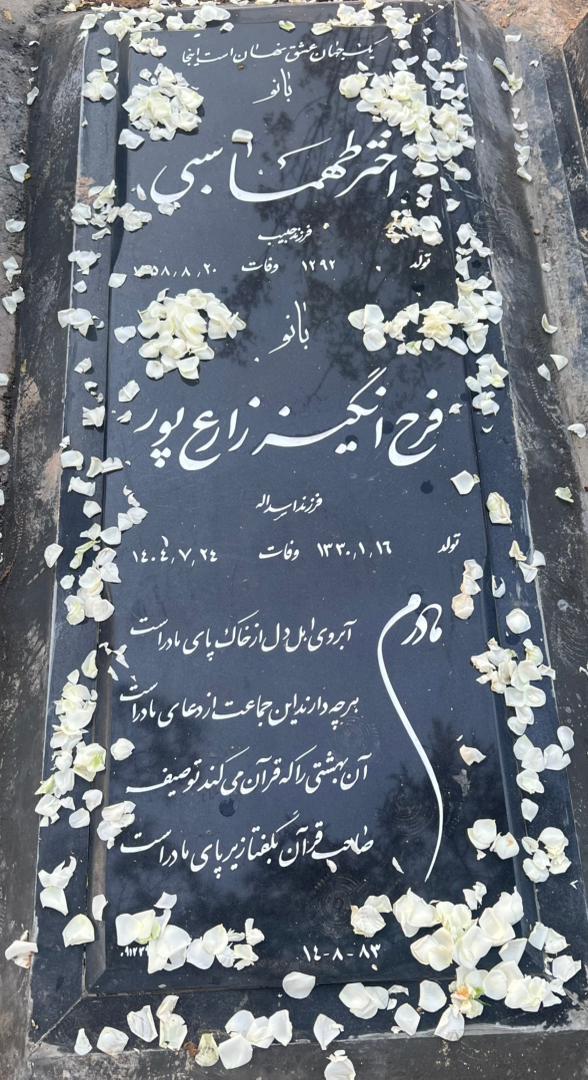 یک جهان عشق نهان است اینجا
بانو
اختر طهماسبی
فرزند حبیب
تولد ۱۲۹۲ وفات ۱۳۵۸٫۸٫۲۰
بانو
فرح انگیز زارع پور
فرزند اسداله
تولد ۱۳۳۰٫۱٫۱۶ وفات ۱۴۰۴٫۷٫۲۴
مادرم
آبروی اهل دل از خاک پای مادر است
هرچه دارند این جماعت از دعای مادر است
آن بهشتی را که قرآن می کند توصیف
صاحب قرآن بگفتا زیر پای مادر است
۱۴-۸-۸۳